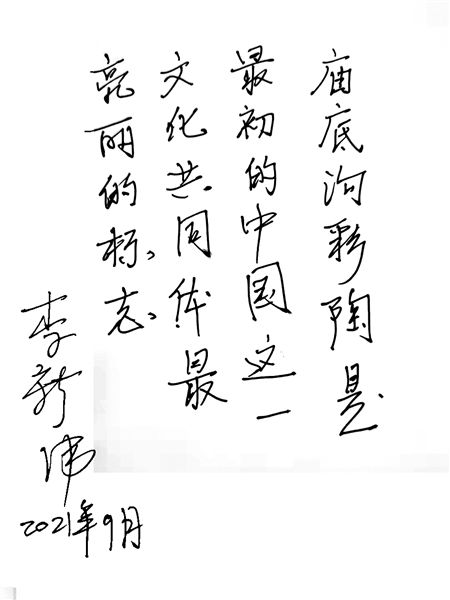 庙底沟彩陶是
最初的中国这一
文化共同体最
亮丽的标志。
李新伟
2021年9月